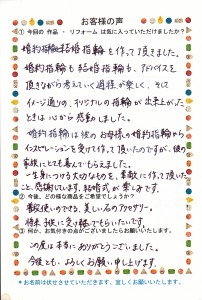 お客様の声
① 今回の 作品 ・ リフォーム は気に入っていただけましたか？
婚約指輪も結婚指輪も作って頂きました。
婚約指輪も結婚指輪も、アドバイスを
頂きながら考えていく過程が楽しく、そして
イメージ通りの、オリジナルの指輪が出来上がった
ときは心から感動しました。
婚約指輪は彼のお母様の婚約指輪から
インスピレーションを受けて作って頂いたのですが、彼の
家族にもとても喜んでもらえました。
一生身につける大切なものを、素敵に作って頂いた
こと、感謝しています。結婚式が楽しみです。
② 今後、どの様な商品をご希望でしょうか？
普段使いのできる、美しい石のアクセサリー。
将来子供に受け継いでもらいたいです。
③ 何か、お気付きの点がございましたらお願いいたします。
この度は本当にありがとうございました。
今後とも、よろしくお願い申し上げます。
★お名前は伏せさせていただきます、宜しくお願いいたします。